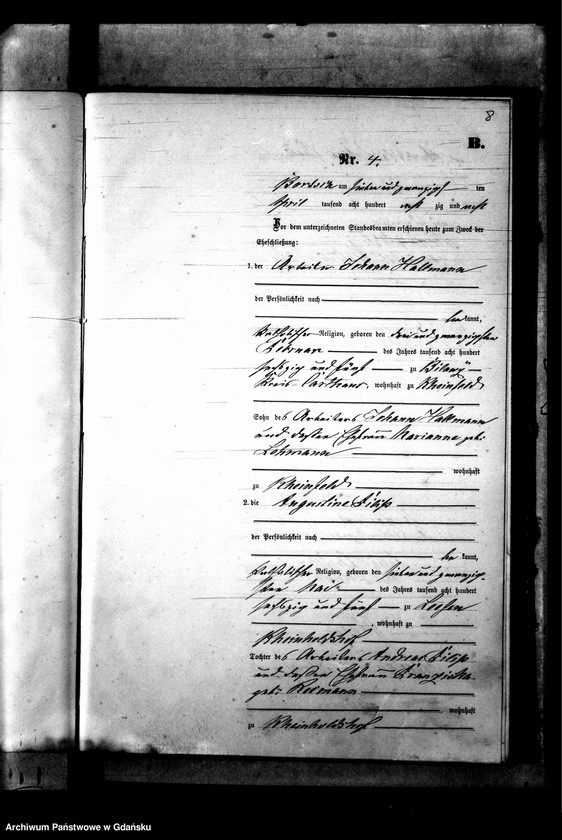 8
B.
Nr. 4.
am sieben und zwanzigsten
April tausend acht hundert acht zig und acht
Vor dem unterzeichneten Standesbeamten erschienen heute zum Zweck der
Eheschließung:
1. der Arbeiter Johann Hallmann
der Persönlichkeit nach
be kannt,
katholischer Religion, geboren den drei und zwanzigsten
Februar des Jahres tausend acht hundert
sechszig und fünf zu
Kreis Carthaus, wohnhaft zu Rheinfeld
Sohn des Arbeiters Johann Hallmann
und dessen Ehefrau Marianne geb.
Lehmann
wohnhaft
zu Rheinfeld
2. die Augustine
der Persönlichkeit nach
be kannt,
katholischer Religion, geboren den sieben und zwanzig-
sten Mai des Jahres tausend acht hundert
sechszig und fünf zu
, wohnhaft zu
Rheinholdshof
Tochter des Arbeiters Andreas
und dessen Ehefrau Franziska
geb.
wohnhaft
zu Rheinholdshof
Archiwum Państwowe w Gdańsku